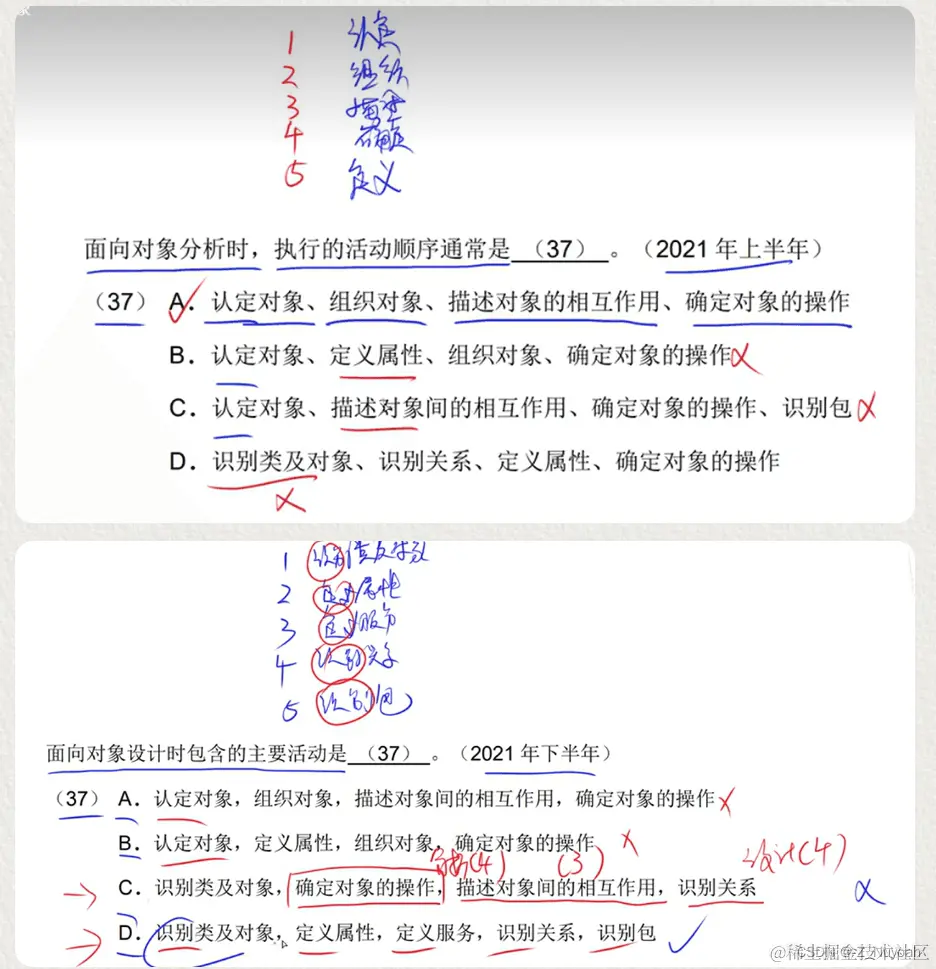 1 认定
2 组织
3 描述
4 确定
5 定义
面向对象分析时，执行的活动顺序通常是 （37） 。（2021 年上半年）
（37） A. 认定对象、组织对象、描述对象的相互作用、确定对象的操作
B. 认定对象、定义属性、组织对象、确定对象的操作
C. 认定对象、描述对象间的相互作用、确定对象的操作、识别包
D. 识别类及对象、识别关系、定义属性、确定对象的操作
1 识别类及对象
2 定义属性
3 定义服务
4 识别关系
5 识别包
面向对象设计时包含的主要活动是 （37） 。（2021 年下半年）
（37） A. 认定对象，组织对象，描述对象间的相互作用，确定对象的操作
B. 认定对象，定义属性，组织对象，确定对象的操作
分析(4) (3) 设计(4)
C. 识别类及对象，确定对象的操作，描述对象间的相互作用，识别关系
D. 识别类及对象，定义属性，定义服务，识别关系，识别包
@稀土掘金技术社区